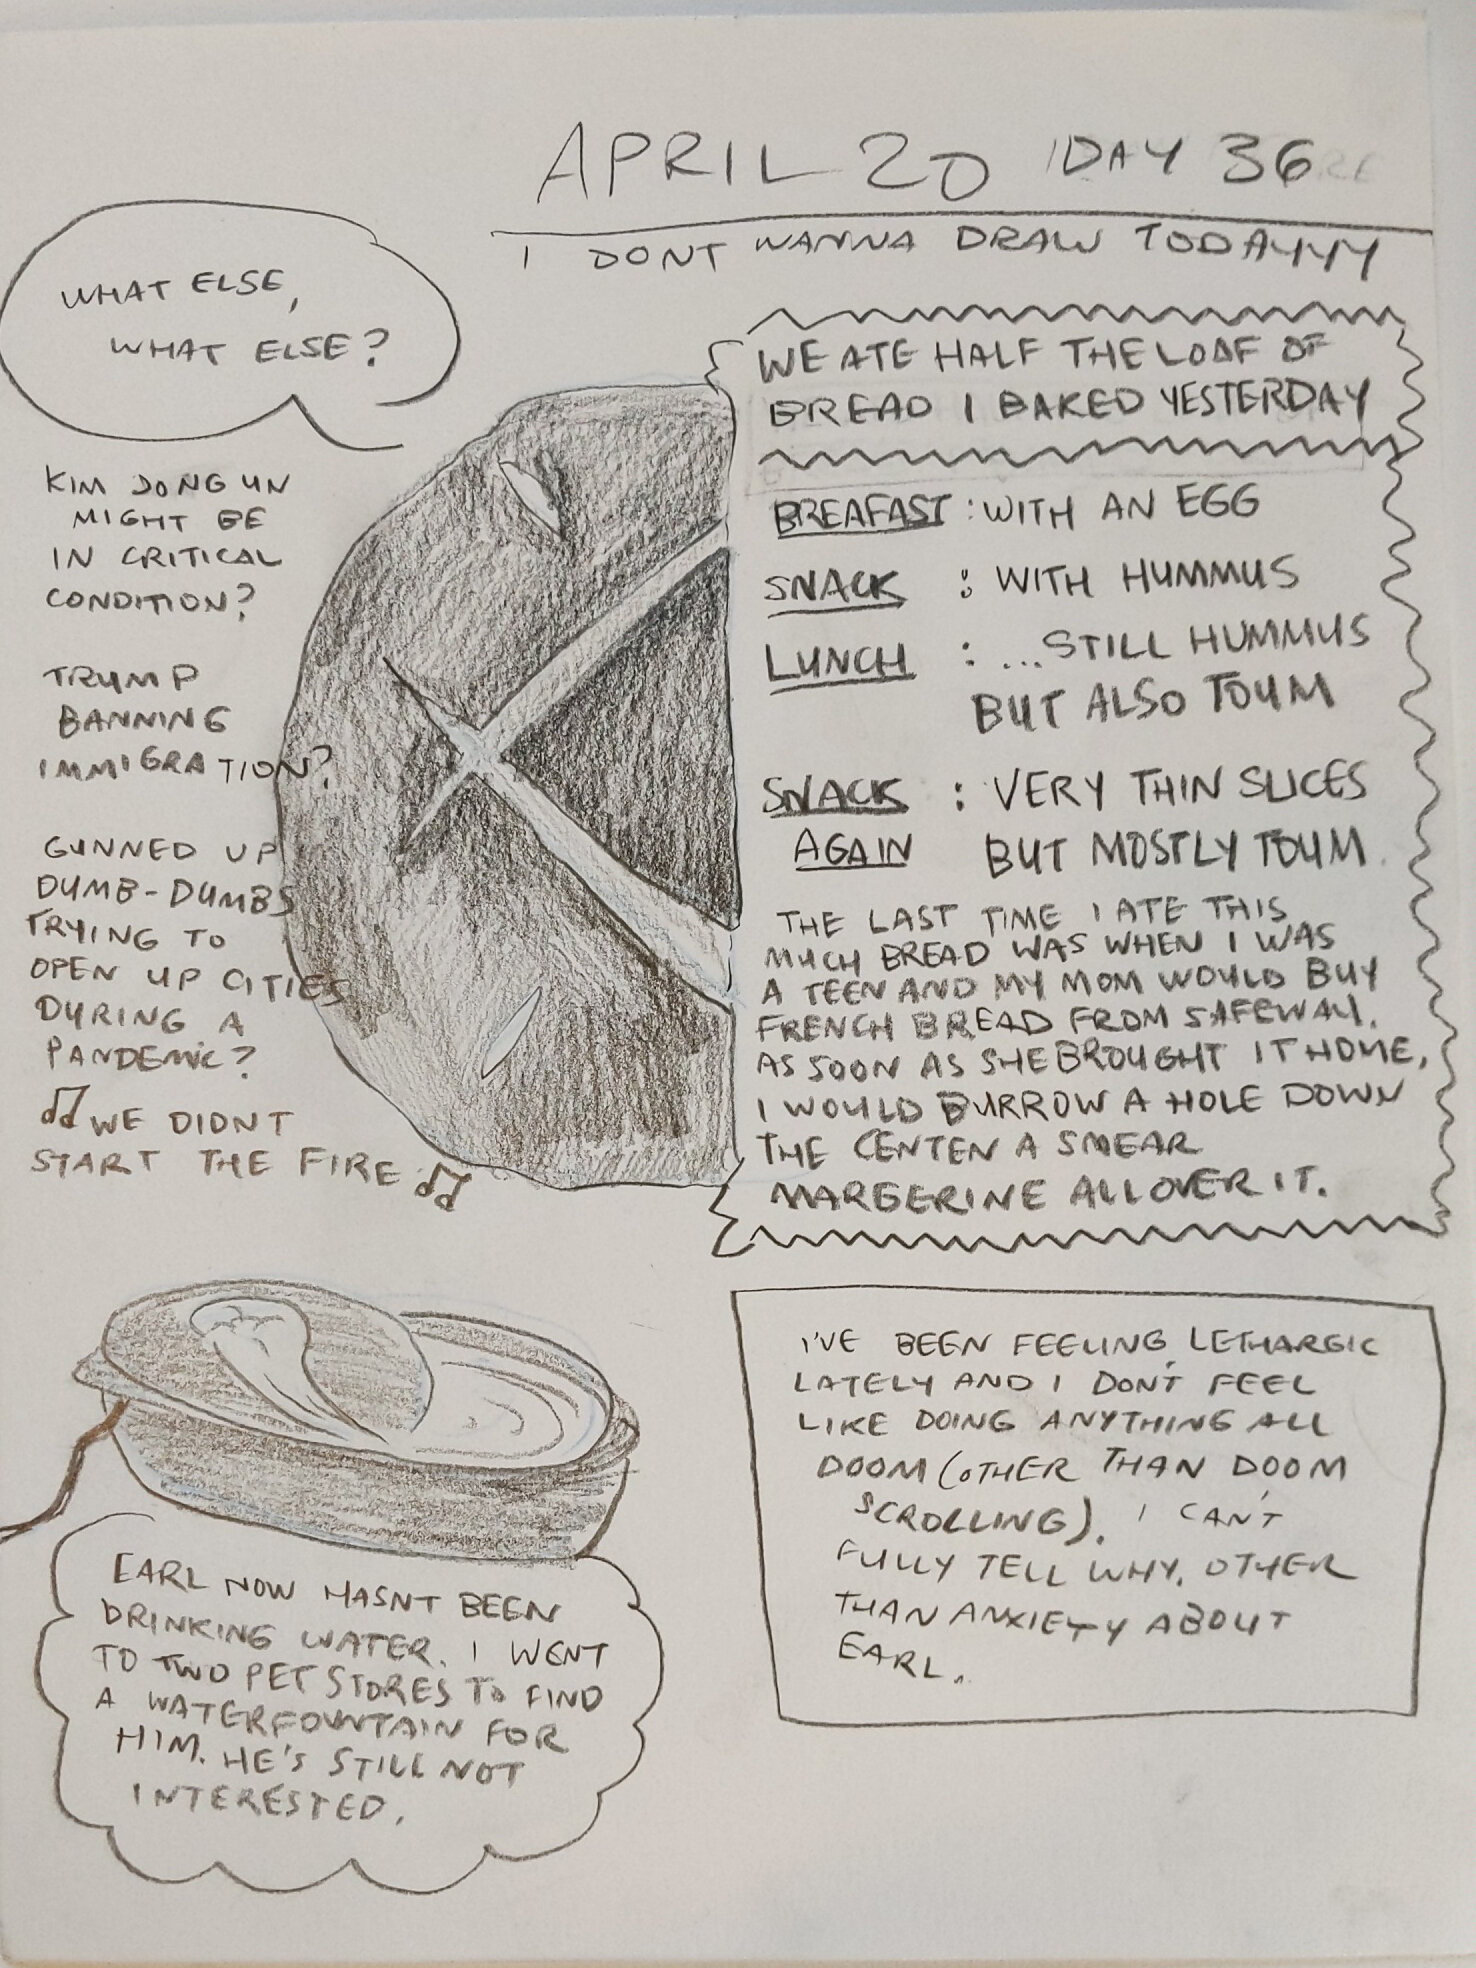 APRIL 20 DAY 36
I DONT WANNA DRAW TODAYYYY
WHAT ELSE,
WHAT ELSE?
KIM JONG UN
MIGHT BE
IN CRITICAL
CONDITION?
TRUMP
BANNING
IMMIGRATION?
GUNNED UP
DUMB-DUMBS
TRYING TO
OPEN UP CITIES
DURING A
PANDEMIC?
♫ WE DIDNT
START THE FIRE ♫
WE ATE HALF THE LOAF OF
BREAD I BAKED YESTERDAY
BREAFAST : WITH AN EGG
SNACK : WITH HUMMUS
LUNCH : ...STILL HUMMUS
BUT ALSO TOUM
SNACK : VERY THIN SLICES
AGAIN BUT MOSTLY TOUM.
THE LAST TIME I ATE THIS
MUCH BREAD WAS WHEN I WAS
A TEEN AND MY MOM WOULD BUY
FRENCH BREAD FROM SAFEWAY.
AS SOON AS SHE BROUGHT IT HOME,
I WOULD BURROW A HOLE DOWN
THE CENTEN A SMEAR
MARGERINE ALL OVER IT.
EARL NOW HASNT BEEN
DRINKING WATER. I WENT
TO TWO PET STORES TO FIND
A WATERFOUNTAIN FOR
HIM. HE'S STILL NOT
INTERESTED.
I'VE BEEN FEELING LETHARGIC
LATELY AND I DON'T FEEL
LIKE DOING ANYTHING ALL
DOOM (OTHER THAN DOOM
SCROLLING). I CAN'T
FULLY TELL WHY. OTHER
THAN ANXIETY ABOUT
EARL.